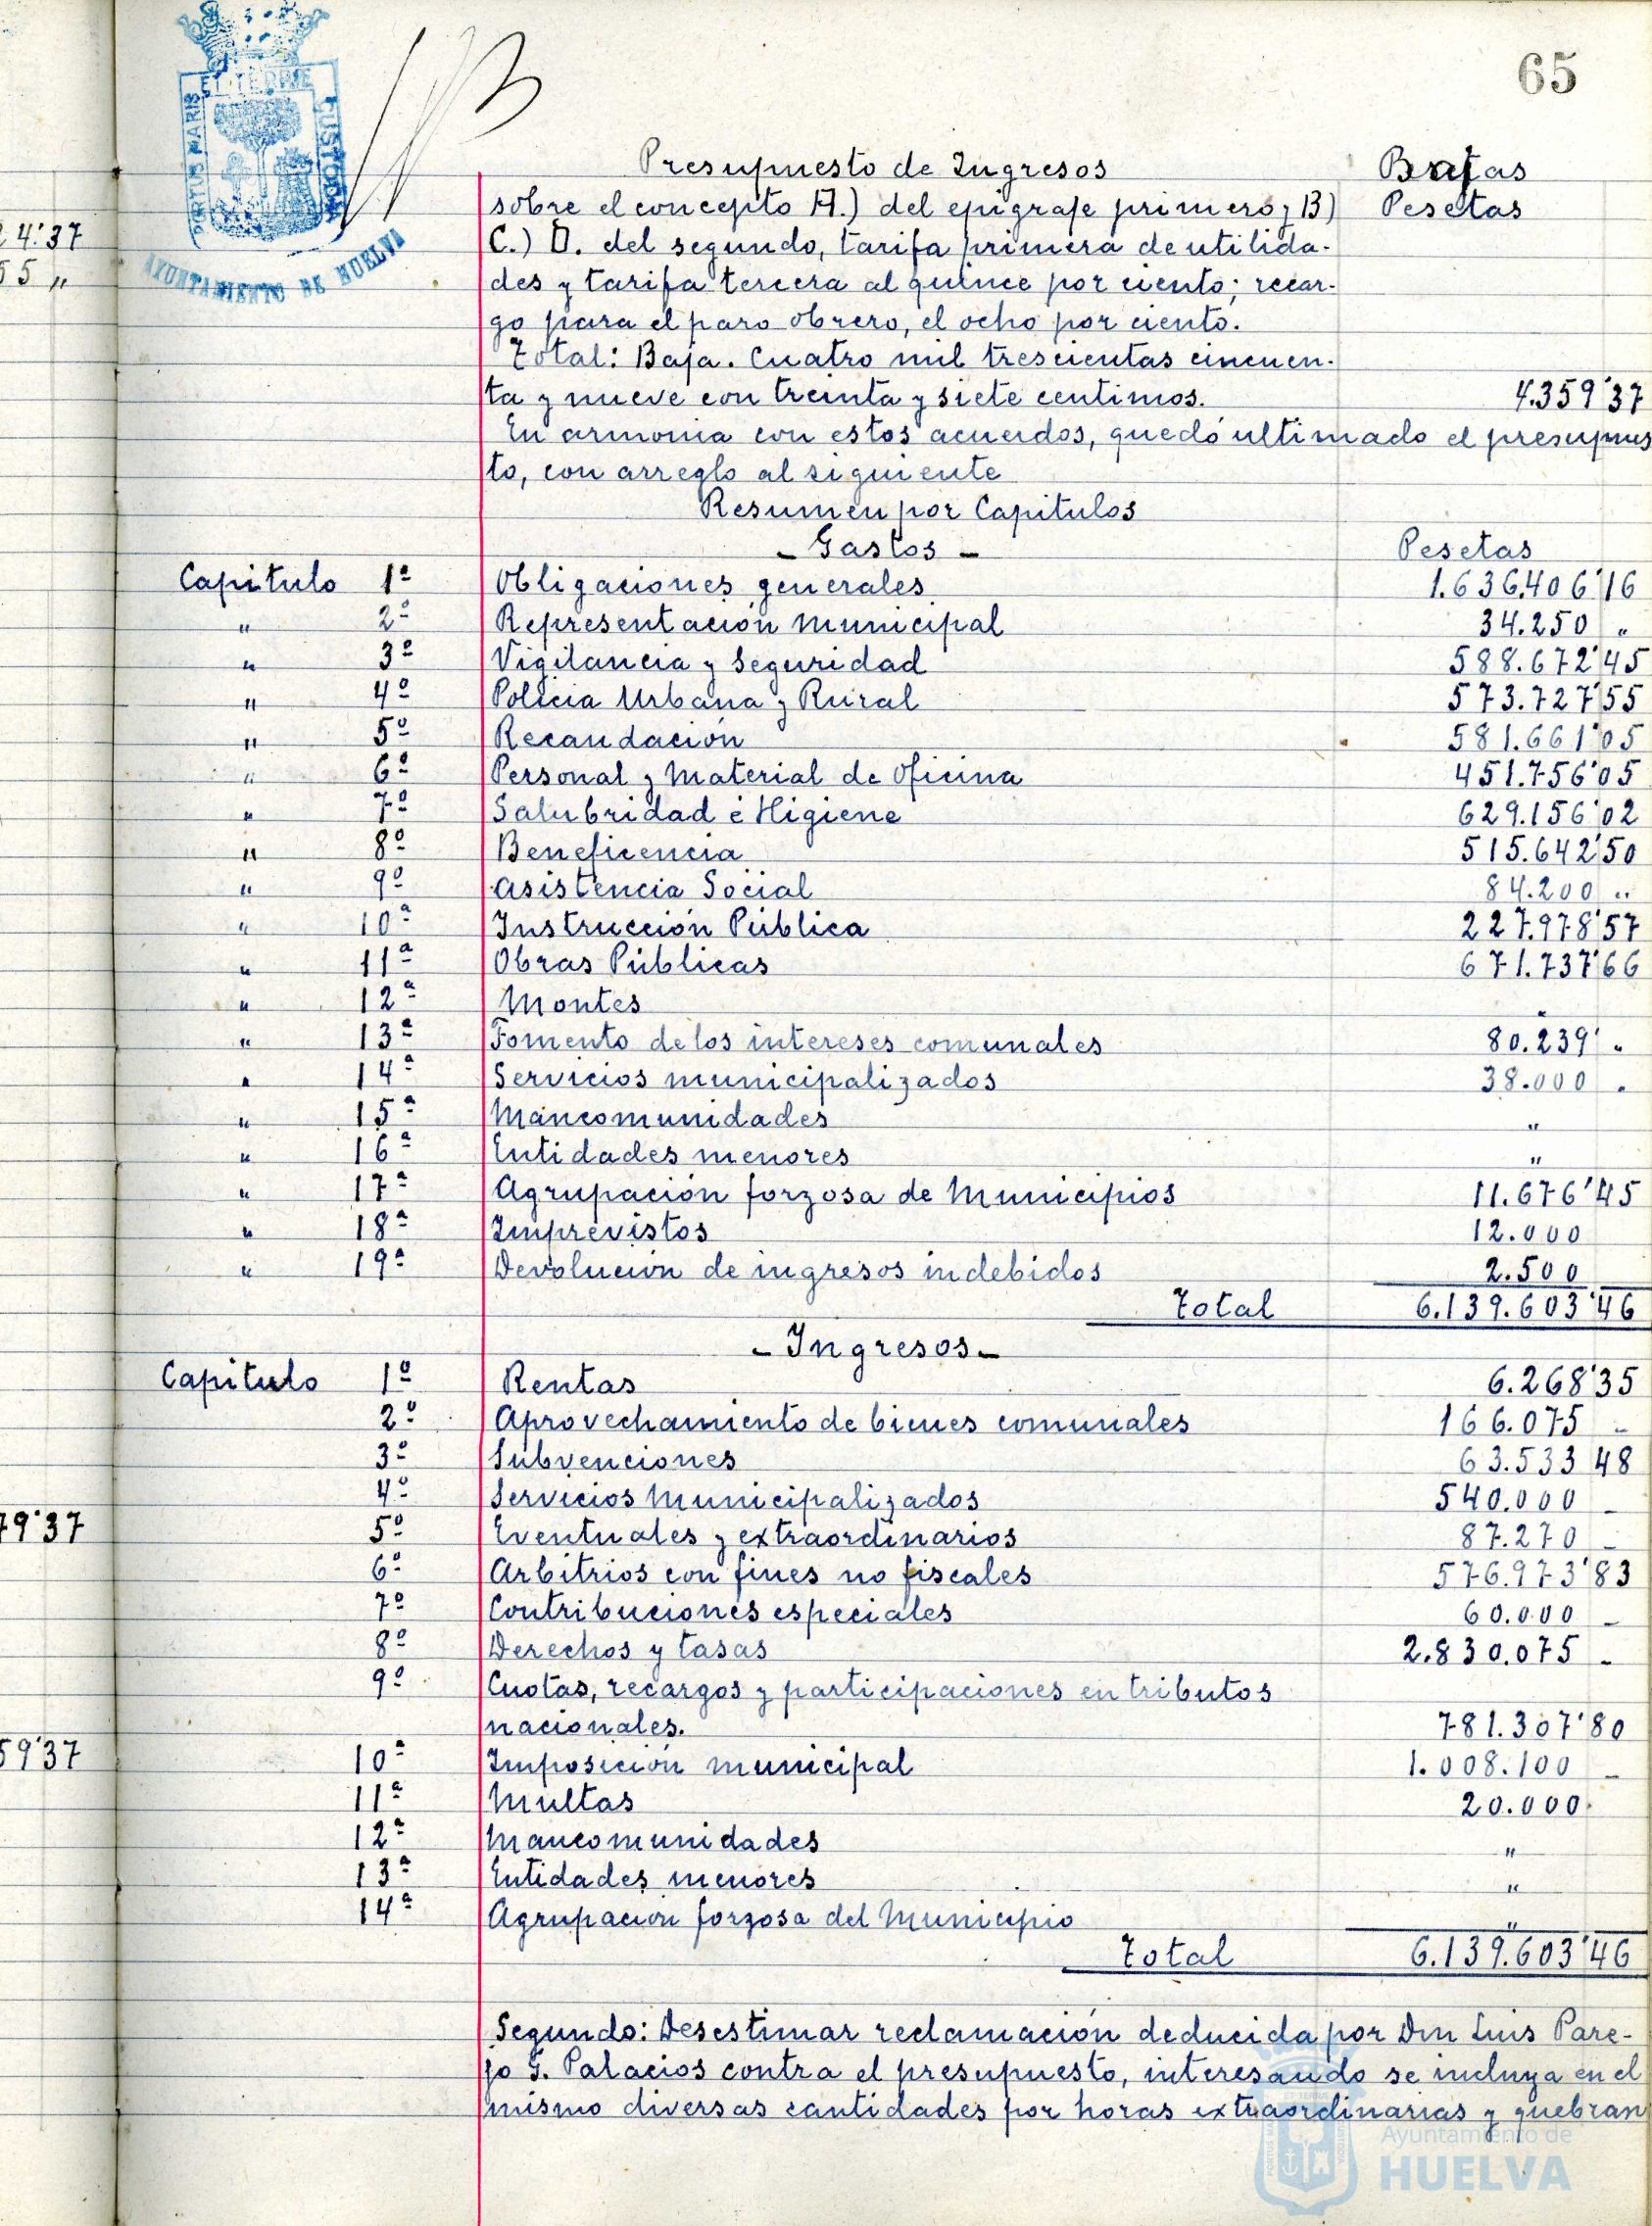 65
PORTUS MARIS ET TERRÆ CUSTODIA
AYUNTAMIENTO DE HUELVA
Presupuesto de Ingresos Bajas
sobre el concepto A.) del epigrafe primero y B) Pesetas
C.) D. del segundo, tarifa primera de utilida-
des y tarifa tercera al quince por ciento; recar-
go para el paro obrero, el ocho por ciento.
Total: Baja. Cuatro mil trescientas cincuen-
ta y nueve con treinta y siete centimos. 4.359'37
En armonia con estos acuerdos, quedó ultimado el presupues
to, con arreglo al siguiente
Resumen por Capitulos
- Gastos - Pesetas
Capitulo 1º Obligaciones generales 1.636.406'16
" 2º Representación municipal 34.250 "
" 3º Vigilancia y Seguridad 588.672'45
" 4º Policia Urbana y Rural 573.727'55
" 5º Recaudación 581.661'05
" 6º Personal y Material de Oficina 451.756'05
" 7º Salubridad é Higiene 629.156'02
" 8º Beneficencia 515.642'50
" 9º Asistencia Social 84.200 "
" 10º Instrucción Pública 227.978'57
" 11º Obras Públicas 671.737'66
" 12º Montes "
" 13º Fomento de los intereses comunales 80.239' "
" 14º Servicios municipalizados 38.000 "
" 15º Mancomunidades "
" 16º Entidades menores "
" 17º Agrupación forzosa de Municipios 11.676'45
" 18º Imprevistos 12.000
" 19º Devolución de ingresos indebidos 2.500
Total 6.139.603'46
- Ingresos -
Capitulo 1º Rentas 6.268'35
2º Aprovechamiento de bienes comunales 166.075 -
3º Subvenciones 63.533 48
4º Servicios Municipalizados 540.000 -
5º Eventuales y extraordinarios 87.270 -
6º Arbitrios con fines no fiscales 576.973'83
7º Contribuciones especiales 60.000 -
8º Derechos y tasas 2.830.075 -
9º Cuotas, recargos y participaciones en tributos
nacionales. 781.307'80
10º Imposición municipal 1.008.100 -
11º Multas 20.000
12º Mancomunidades "
13º Entidades menores "
14º Agrupación forzosa del Municipio "
Total 6.139.603'46
Segundo: Desestimar reclamación deducida por Don Luis Pare-
jo G. Palacios contra el presupuesto, interesando se incluya en el
mismo diversas cantidades por horas extraordinarias y quebran
4'37
55 "
79'37
59'37
Ayuntamiento de
HUELVA